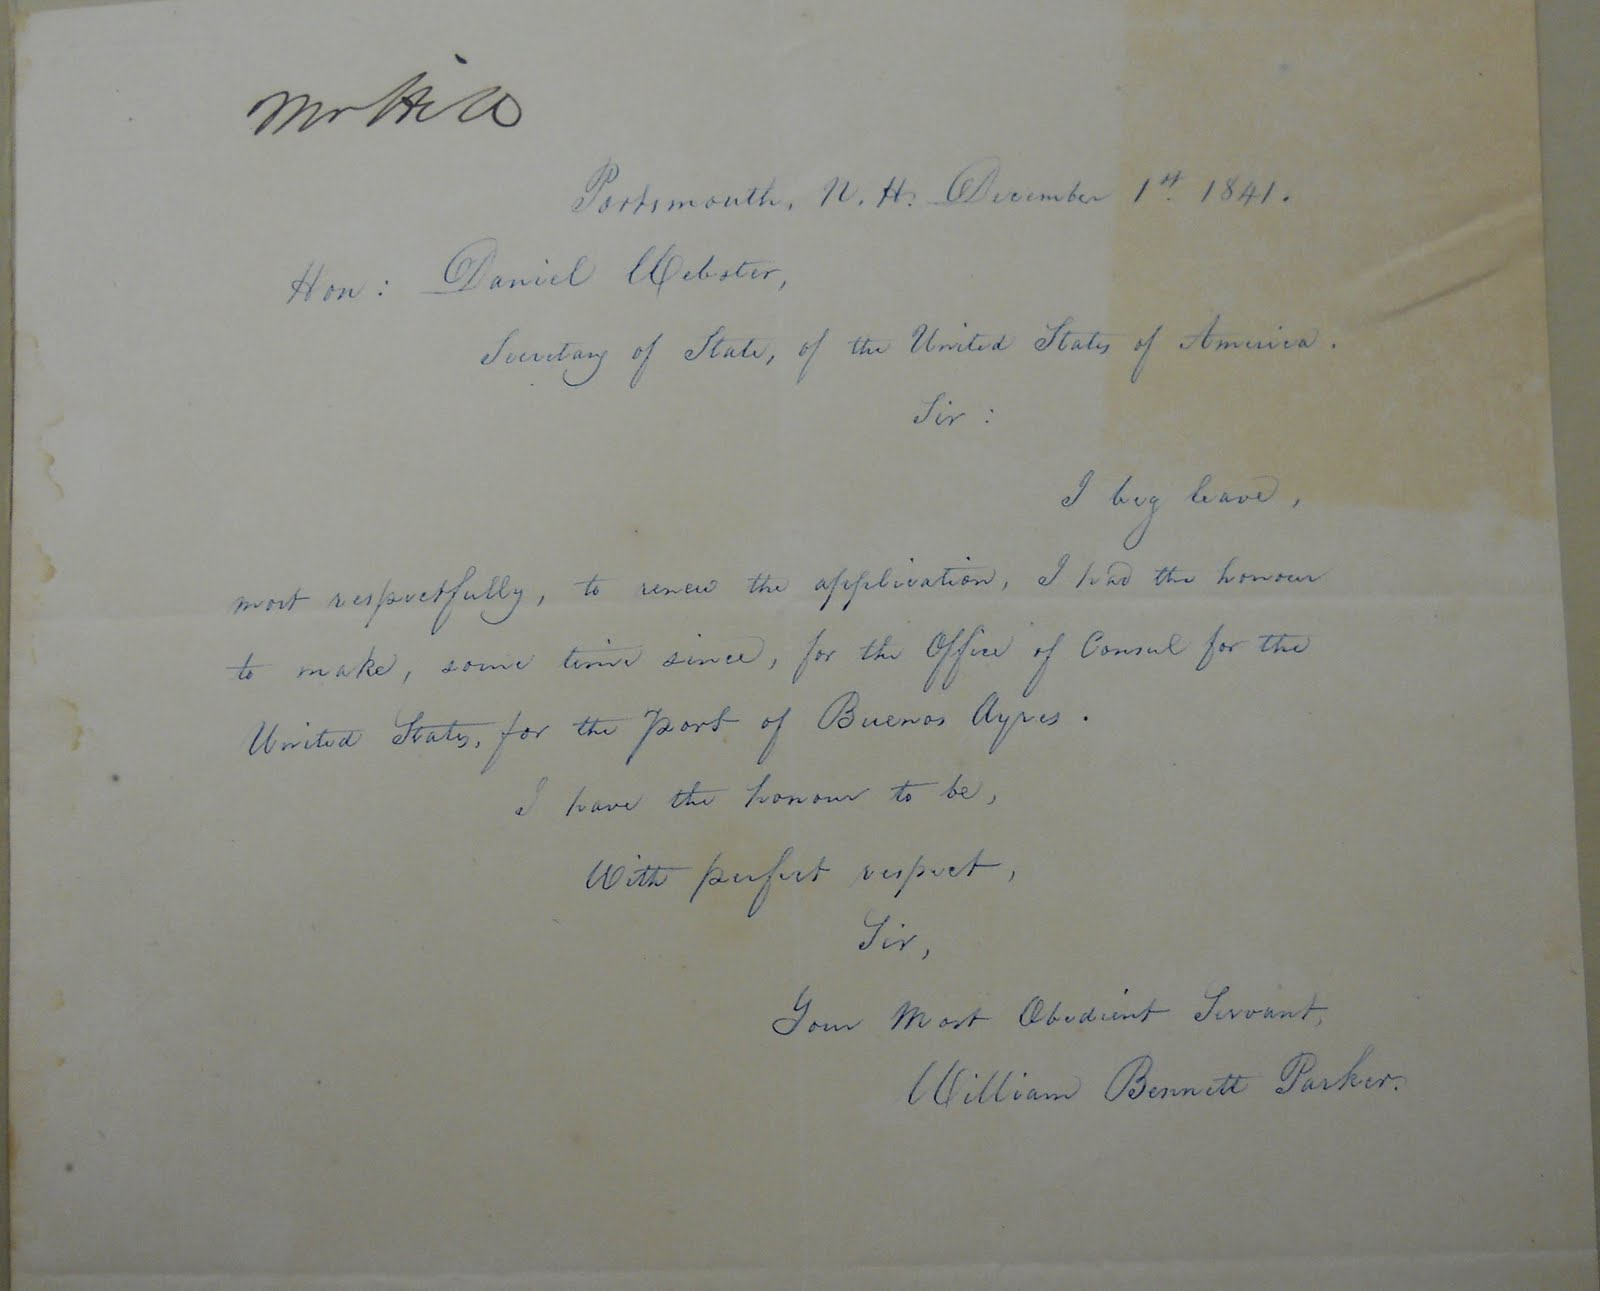 Mr Hill
Portsmouth, N. H. December 1st. 1841.
Hon: Daniel Webster,
Secretary of State, of the United States of America.
Sir:
I beg leave,
most respectfully, to renew the application, I had the honour
to make, some time since, for the Office of Consul for the
United States, for the Port of Buenos Ayres.
I have the honour to be,
With perfect respect,
Sir,
Your Most Obedient Servant,
William Bennett Parker.